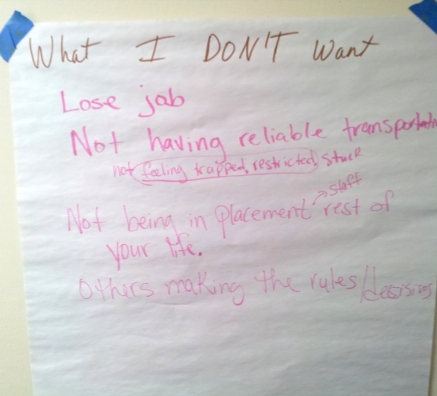 What I DON'T Want
Lose job
Not having reliable transportatn
not feeling trapped, restricted, stuck
staff
Not being in placement rest of
your life.
Others making the rules/